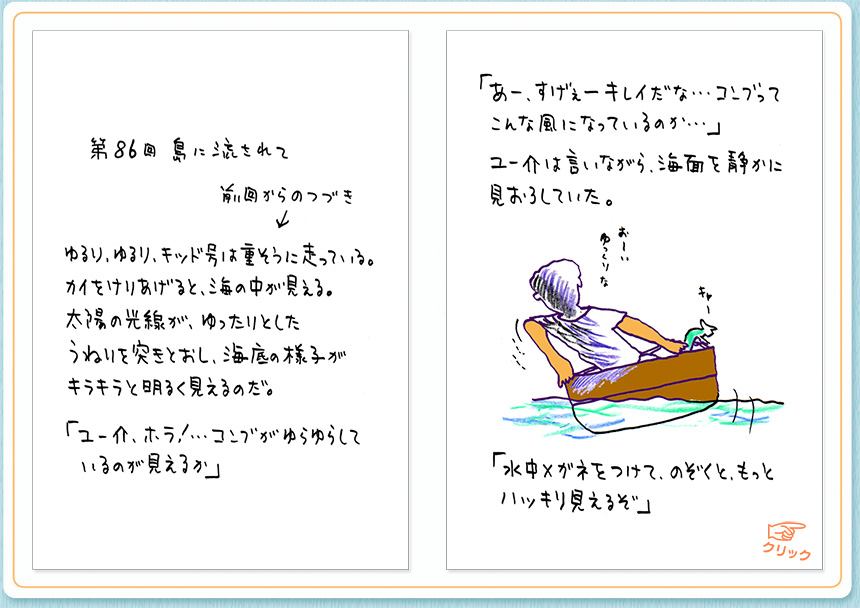 第86回 島に流されて
前回からのつづき
ゆるり、ゆるり、キッド号は重そうに走っている。
カイをけりあげると、海の中が見える。
太陽の光線が、ゆったりとした
うねりを突きとおし、海底の様子が
キラキラと明るく見えるのだ。
「ユー介、ホラ!…コンブがゆらゆらして
いるのが見えるか」
「あー、すげぇーキレイだな…コンブって
こんな風になっているのか…」
ユー介は言いながら、海面を静かに
見おろしていた。
おーい
ゆっくりな
キャー
「水中メガネをつけて、のぞくと、もっと
ハッキリ見えるぞ」
クリック